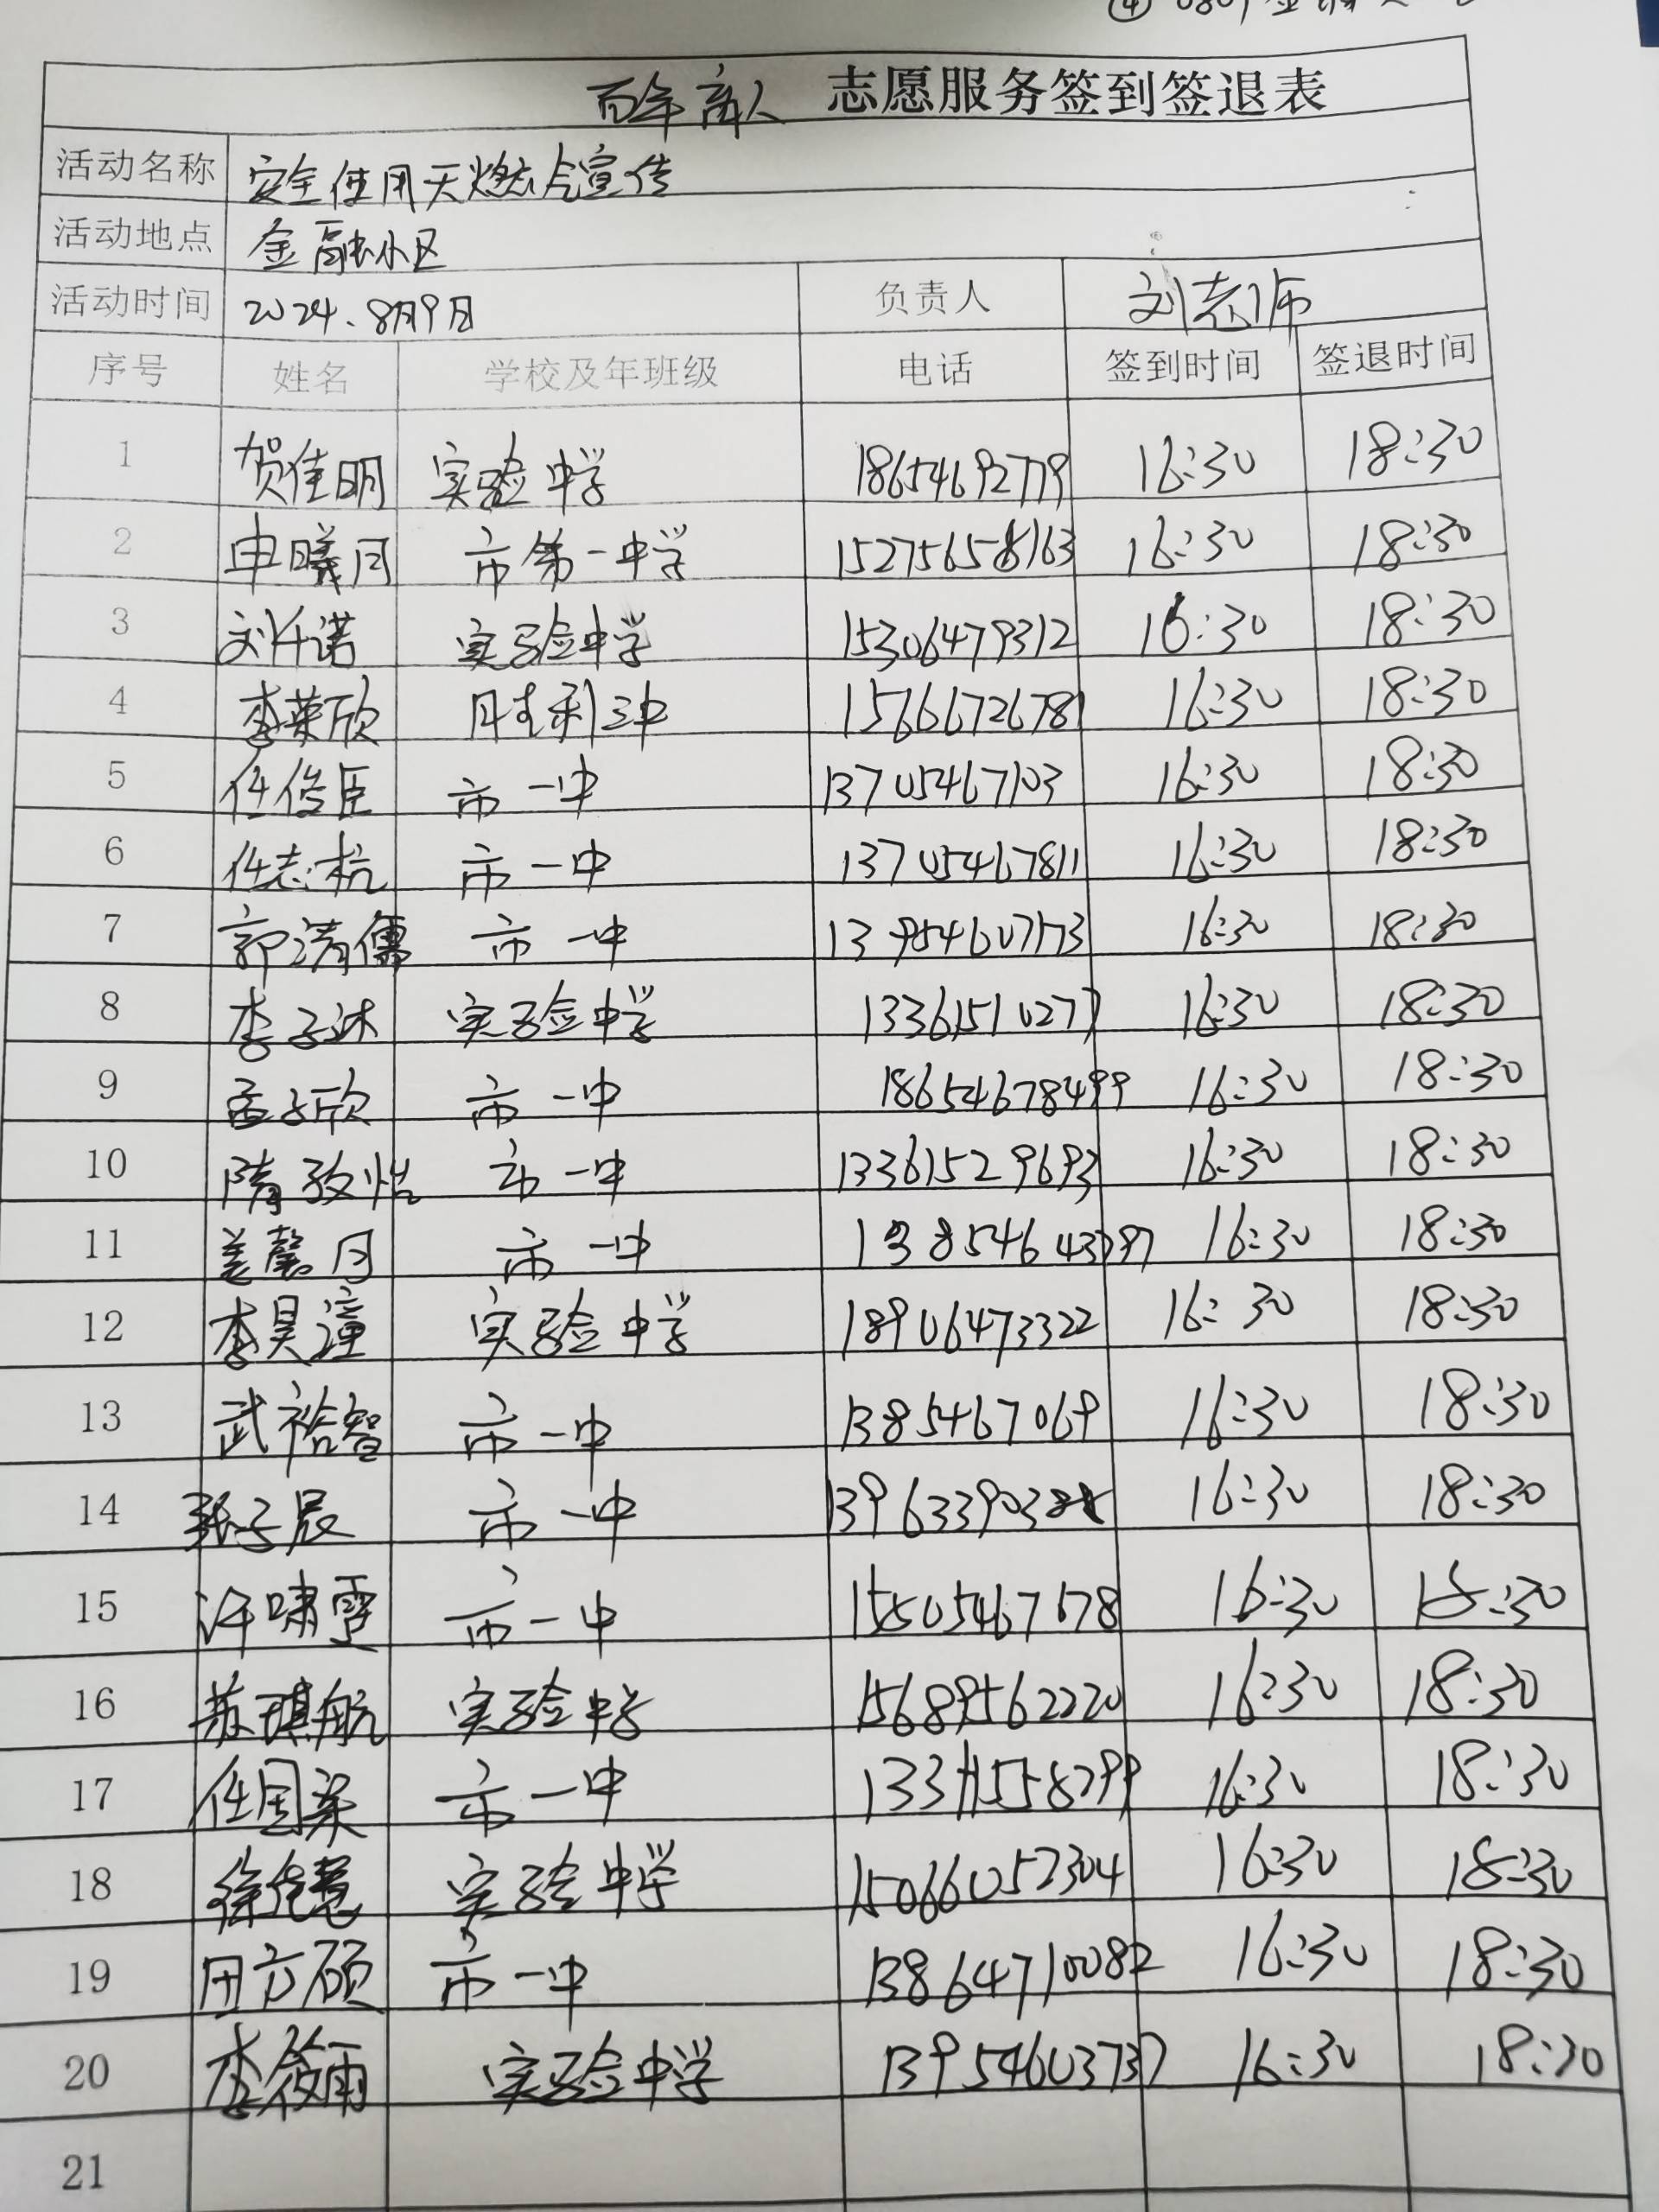 志愿服务签到签退表
活动名称 安全使用天燃气宣传
活动地点 金融小区
活动时间 2024.8月9日 负责人 刘志师
序号 姓名 学校及年班级 电话 签到时间 签退时间
1 贺佳明 实验中学 18654692779 16:30 18:30
2 申曦月 市第一中学 15275658163 16:30 18:30
3 刘千诺 实验中学 15306479312 16:30 18:30
4 李荣欣 胜利三中 15666726781 16:30 18:30
5 任俊臣 市一中 13705467103 16:30 18:30
6 任志杭 市一中 13705467811 16:30 18:30
7 郭清儒 市一中 13954607173 16:30 18:30
8 李子沐 实验中学 13361510277 16:30 18:30
9 孟子欣 市一中 18654678499 16:30 18:30
10 隋孜怡 市一中 13361529693 16:30 18:30
11 姜馨月 市一中 16:30 18:30
12 李昊潼 实验中学 18906473322 16:30 18:30
13 武裕智 市一中 1385467069 16:30 18:30
14 张子辰 市一中 16:30 18:30
15 许啸雯 市一中 15505467678 16:30 18:30
16 苏琪航 实验中学 15689562220 16:30 18:30
17 市一中 16:30 18:30
18 徐佳慧 实验中学 15066052304 16:30 18:30
19 田方硕 市一中 13864710082 16:30 18:30
20 李筱雨 实验中学 13954603737 16:30 18:30
21